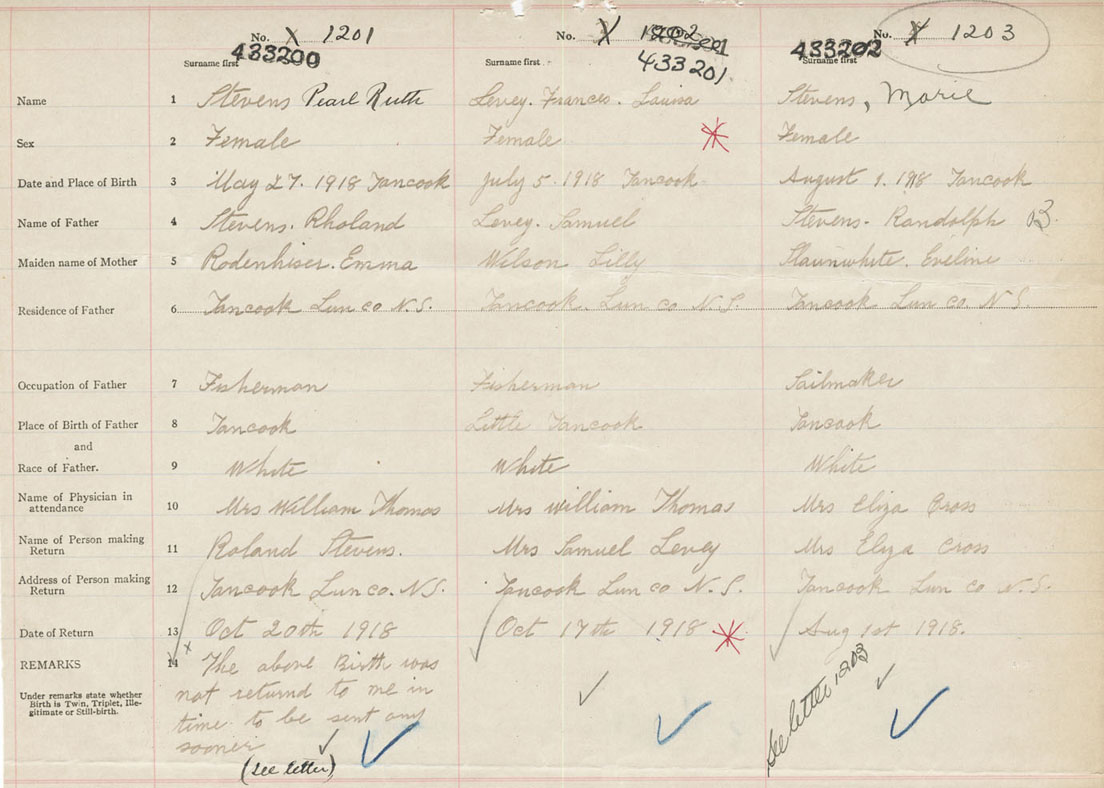 No. X 1201 No. X 1202 No. X 1203
433200 433201 433202
Surname first Surname first Surname first
Name 1 Stevens Pearl Ruth Levey. Frances. Louisa Stevens, Marie
Sex 2 Female Female Female
Date and Place of Birth 3 May 27. 1918 Tancook July 5. 1918 Tancook August 1. 1918 Tancook
Name of Father 4 Stevens. Rholand Levey. Samuel Stevens. Randolph B.
Maiden name of Mother 5 Rodenhiser. Emma Wilson Lilly Slaunwhite. Eveline
Residence of Father 6 Tancook Lun co N.S. Tancook. Lun co N.S. Tancook Lun co. N S.
Occupation of Father 7 Fisherman Fisherman Sailmaker
Place of Birth of Father 8 Tancook Little Tancook Tancook
and
Race of Father. 9 White White White
Name of Physician in
attendance 10 Mrs William Thomas Mrs William Thomas Mrs Eliza Cross
Name of Person making
Return 11 Roland Stevens. Mrs Samuel Levey Mrs Eliza Cross
Address of Person making
Return 12 Tancook Lun co. N.S. Tancook Lun co N.S. Tancook Lun co N.S.
Date of Return 13 Oct 20th 1918 Oct 17th 1918 Aug 1st 1918.
REMARKS 14 The above Birth was
Under remarks state whether
Birth is Twin, Triplet, Ille-
gitimate or Still-birth.
not returnd to me in
time to be sent any
sooner
(See letter)
See letter 1203